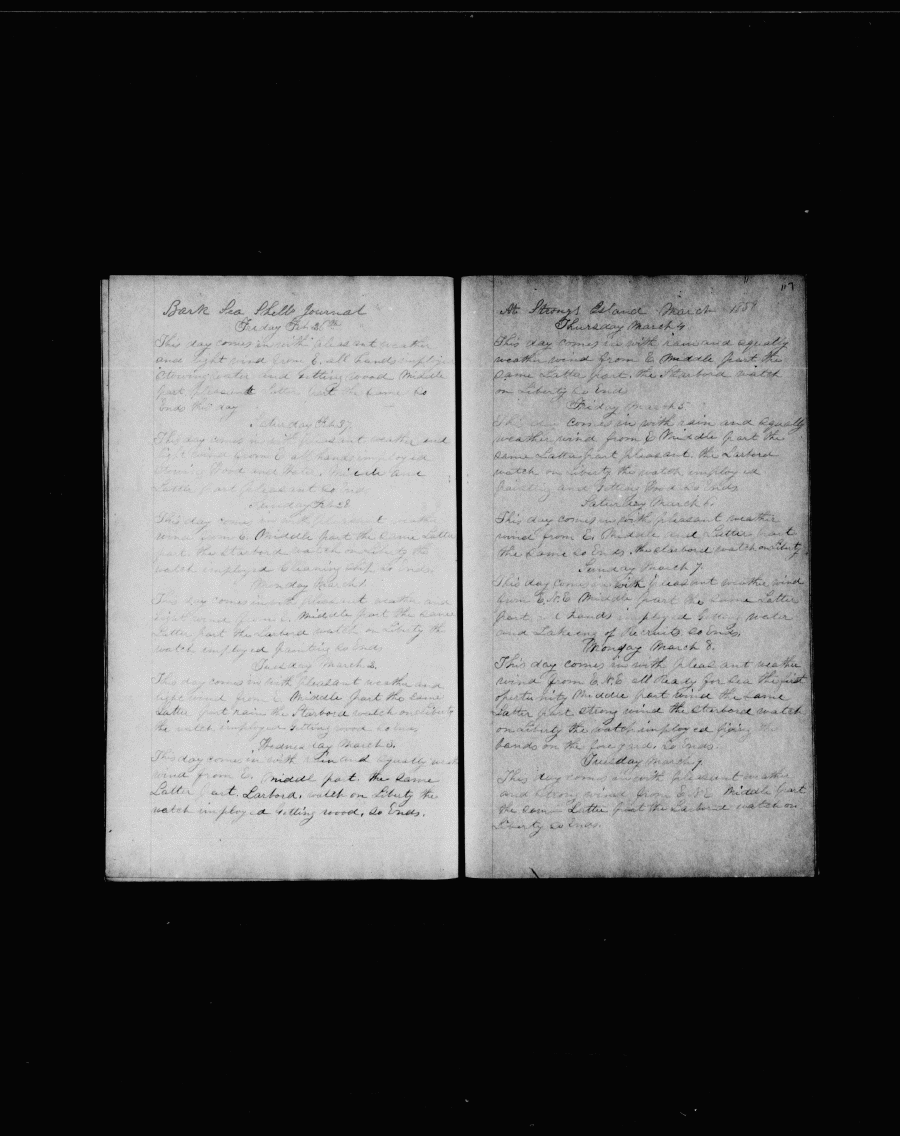 Bark Sea Shell Journal
Friday Feb 26th
This day comes in with pleasant weather
and light wind from E, all hands employed
stowing water and Getting wood Middle
part pleasant latter part the same So
Ends this day
Saturday Feb 27
This day comes in with pleasant weather and
wind from E all hands employed
stowing Wood and Water. Middle and
Latter part pleasant So End
Sunday Feb 28
This day comes in with pleasant weather
wind from E. Middle part the same Latter
part the Starbord watch on Liberty the
watch employed Cleaning Ship So Ends
Monday March 1
This day comes in with pleasant weather and
light wind from E. Middle part the same
Latter part the Larbord watch on Liberty the
watch employed painting So Ends
Tuesday March 2.
This day comes in with pleasant weather and
light wind from E Middle part the same
Latter part rain the Starbord watch on Liberty
the watch employed Getting wood So Ends
Wednesday March 3.
This day comes in with rain and squally weather
wind from E. Middle part. the same
Latter part Larbord. watch on Liberty the
watch imployed Getting wood, So Ends.
117
At Strongs Island March 1858
Thursday March 4
This day comes in with rain and squally
weather wind from E Middle part the
same Latter part. the Starbord watch
on Liberty So End
Friday March 5
This day comes in with rain and squally
weather wind from E Middle part the
same Latter part pleasant. the Larbord
watch on Liberty the watch employed
painting and Getting Wood So Ends
Saturday March 6.
This day comes in with pleasant weather
wind from E. Middle and Latter part
the Same So Ends. the starbord watch on Liberty
Sunday March 7.
This day comes in with pleasant weather wind
from E.N.E Middle part the Same Latter
part all hands imployed Getting water
and Takeing of Recruits So Ends.
Monday March 8.
This day comes in with pleasant weather
wind from E.N.E all Ready for Sea the first
opertunity Middle part wind the same
Latter part strong wind the Starbord watch
on Liberty the watch imployed fixing the
bands on the fore yard. So Ends.
Tuesday March 9
This day comes in with pleasant weather
and strong wind from E.N.E Middle part
the same Latter part the Larbord watch on
Liberty So Ends.